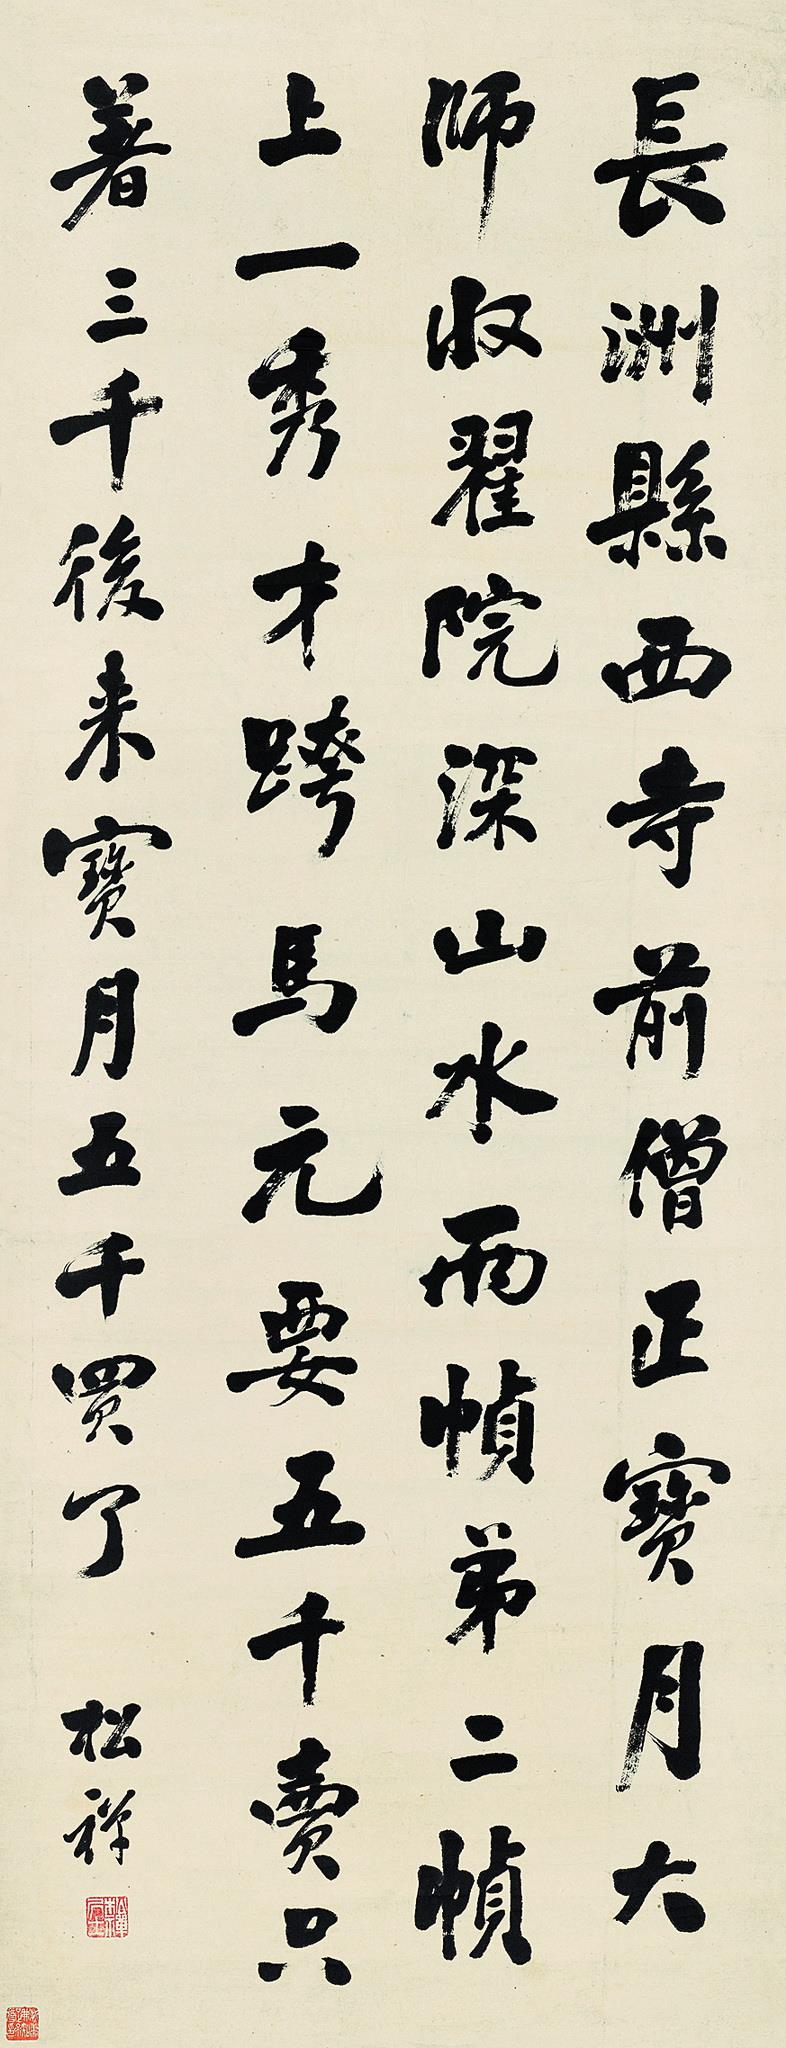 長洲縣西寺前僧正寶月大
師收翟院深山水兩幀弟二幀
上一秀才跨馬元要五千賣只
著三千後来寶月五千買了
松禪